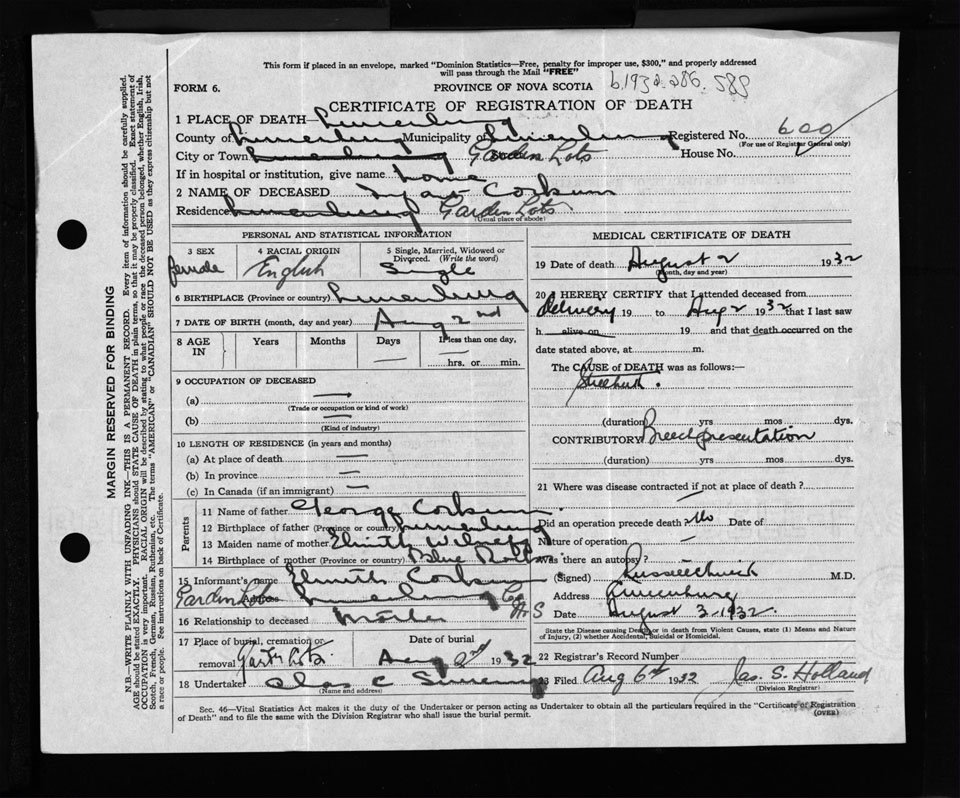 This form if placed in an envelope, marked "Dominion Statistics—Free, penalty for improper use, $300," and properly addressed
will pass through the Mail "FREE"
FORM 6.
PROVINCE OF NOVA SCOTIA
b.1932.286.
CERTIFICATE OF REGISTRATION OF DEATH
1 PLACE OF DEATH— Lunenburg
County of Lunenburg Municipality of Lunenburg Registered No. 600
(For use of Registrar General only)
City or Town Lunenburg Garden Lots House No.
If in hospital or institution, give name home
2 NAME OF DECEASED Corkum
Residence Lunenburg Garden Lots
(Usual place of abode)
PERSONAL AND STATISTICAL INFORMATION
3 SEX 4 RACIAL ORIGIN 5 Single, Married, Widowed or
Divorced. (Write the word)
female English Single
6 BIRTHPLACE (Province or country) Lunenburg
7 DATE OF BIRTH (month, day and year) Aug 2nd
8 AGE IN Years Months Days If less than one day,
— — hrs. or min.
9 OCCUPATION OF DECEASED
(a) —
(Trade or occupation or kind of work)
(b) —
(Kind of industry)
10 LENGTH OF RESIDENCE (in years and months)
(a) At place of death —
(b) In province —
(c) In Canada (if an immigrant) —
Parents
11 Name of father George Corkum
12 Birthplace of father (Province or country) Lunenburg
13 Maiden name of mother
14 Birthplace of mother (Province or country) Blue Rocks
15 Informant's name Corkum
Garden Lots Address Lunenburg Co
N S
16 Relationship to deceased Mother
17 Place of burial, cremation or Date of burial
removal Lots Aug 2nd 1932
18 Undertaker Chas C
(Name and address)
MEDICAL CERTIFICATE OF DEATH
19 Date of death August 2 1932
(Month, day and year)
20 I HEREBY CERTIFY that I attended deceased from
delivery 19 to Aug 2 1932 that I last saw
h alive on 19 and that death occurred on the
date stated above, at m.
The CAUSE of DEATH was as follows:—
Stillbirth.
(duration) yrs mos dys.
CONTRIBUTORY Breech presentation
(duration) yrs mos dys.
21 Where was disease contracted if not at place of death?
Did an operation precede death? No Date of
Nature of operation. —
Was there an autopsy?
(Signed) M.D.
Address Lunenburg
Date August 3-1932.
State the Disease causing Death or in death from Violent Causes, state (1) Means and Nature
of Injury, (2) whether Accidental, Suicidal or Homicidal.
22 Registrar's Record Number
23 Filed Aug 6th 1932 Jas. S. Holland
(Division Registrar)
Sec. 46—Vital Statistics Act makes it the duty of the Undertaker or person acting as Undertaker to obtain all the particulars required in the "Certificate of Registration
of Death" and to file the same with the Division Registrar who shall issue the burial permit.
(OVER)
MARGIN RESERVED FOR BINDING
N.B.—WRITE PLAINLY WITH UNFADING INK—THIS IS A PERMANENT RECORD. Every item of information should be carefully supplied.
AGE should be stated EXACTLY. PHYSICIANS should STATE CAUSE OF DEATH in plain terms, so that it may be properly classified. Exact statement of
OCCUPATION is very important. RACIAL ORIGIN will be described by stating to what people or race the deceased person belonged, whether English, Irish,
Scotch, French, German, Russian, Ruthenian, etc. The terms "AMERICAN" or "CANADIAN" SHOULD NOT BE USED as they express citizenship but not
a race or people. See instructions on back of Certificate.